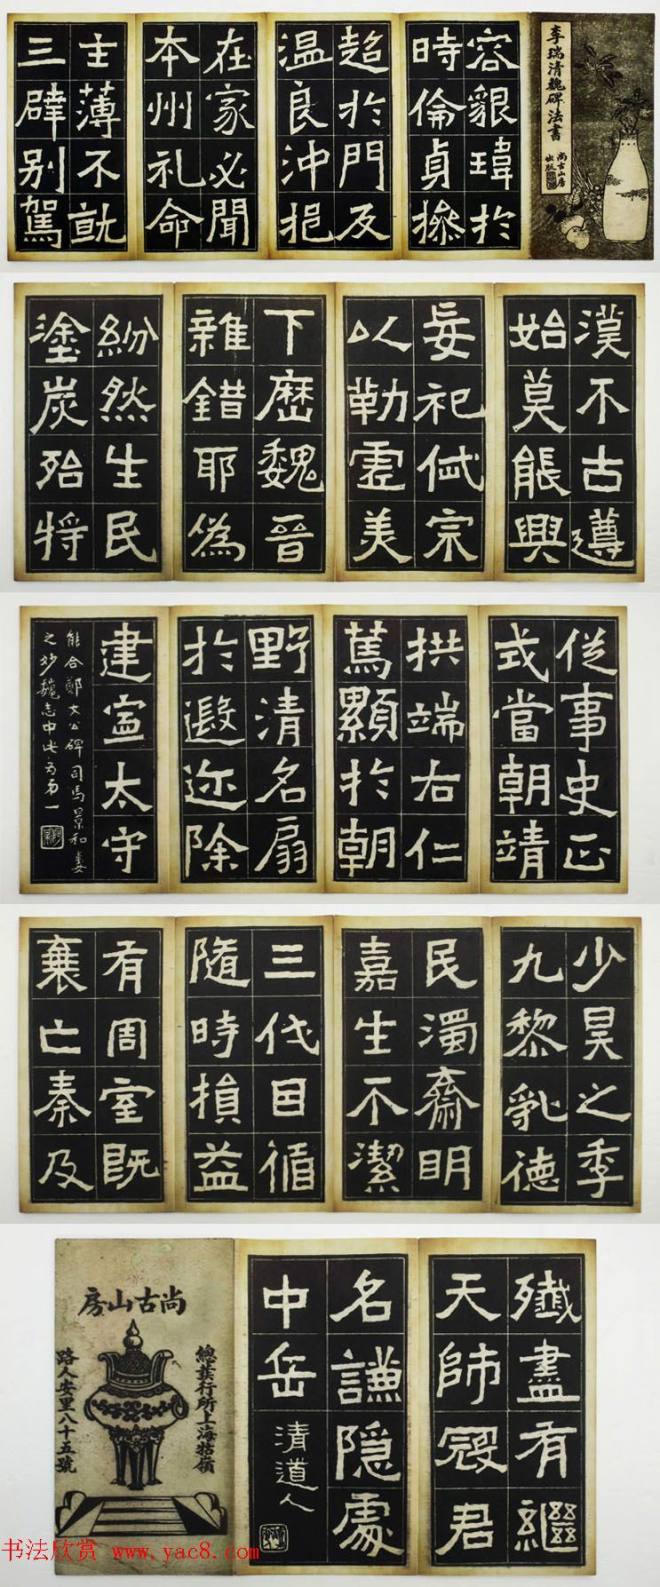 李瑞清魏碑法書
尚古山房
出版
容貌瑋於
時倫貞操
超於門及
温良沖挹
在家必聞
本州礼命
主薄不就
三辟别駕
漢不古遵
始莫能興
妄祀宗
以勒虚美
下歷魏晉
雜錯耶偽
紛然生民
塗炭殆將
從事史正
式當朝靖
拱端右仁
篤顯於朝
野清名扇
於遐迩除
建寍太守
能合鄭文公碑司馬景和妻
之妙魏志中此為第一
少昊之季
九黎乱德
民濁齋明
嘉生不潔
三代因循
隨時損益
有周室既
衰亡秦及
殲盡有繼
天師寇君
名謙隐處
中岳
清道人
尚古山房
總發行所上海牯嶺
路人安里八十五號
书法欣赏 www.yac8.com